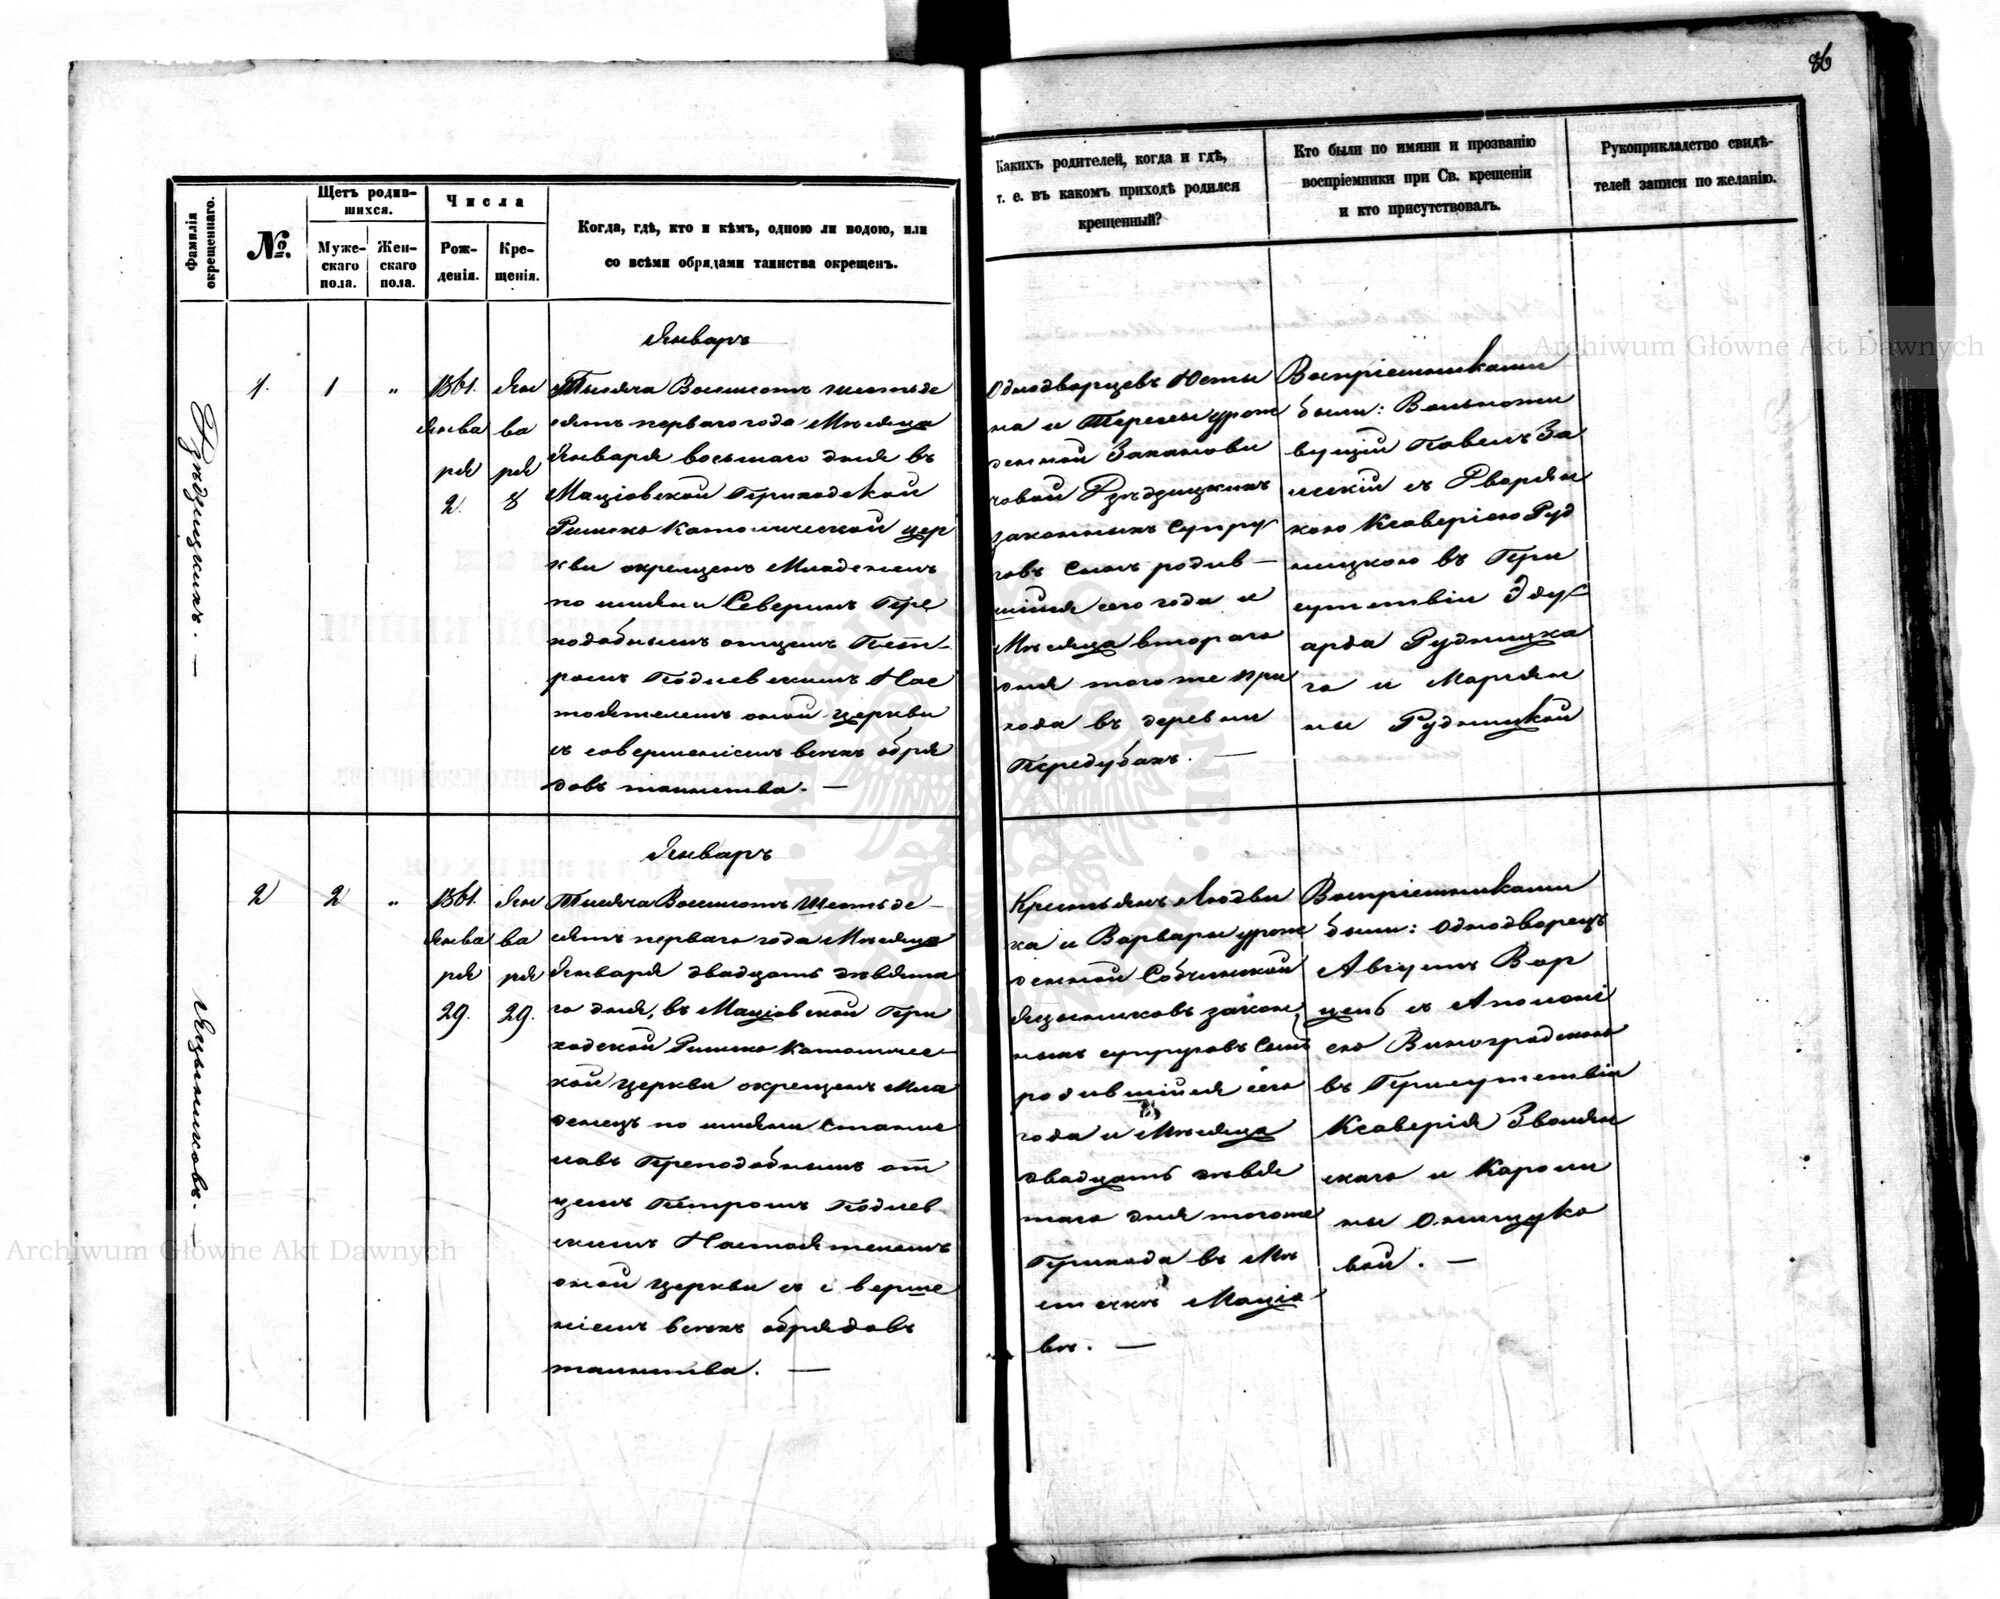 86
Фамилія
окрещеннаго.
№.
Щетъ родив-
шихся.
Муже-
скаго
пола.
Жен-
скаго
пола.
Числа
Рож-
денія.
Кре-
щенія.
Когда, гдѣ, кто и кѣмъ, одною ли водою, или
со всѣми обрядами таинства окрещенъ.
Каихъ родителей, когда и гдѣ,
т. е. въ какомъ приходѣ родился
крещенный?
Кто были по имяни и прозванію
воспріемники при Св. крещеніи
и кто присутствовалъ.
Рукоприкладство свидѣ-
телей записи по желанію.
1.
1
"
1861.
Янва
ря
2.
Ян
ва
ря
8
Январь
Тысяча Восемсотъ шестьде
сятъ перваго года Мѣсяца
Января восьмаго дня въ
Маціовской Приходской
Римско Католической цер
кви окрещенъ Младенецъ
по имяни Северинъ Пре
подобнымъ отцемъ Пет-
ромъ Подлевскимъ Нас
тоятелемъ оной церкви
съ совершеніемъ всѣхъ обря
довъ таинства. —
Однодворцевъ Юсты
на и Терезы урож
денной
законныхъ супру
говъ сынъ родив—
шійся сего года и
Мѣсяца втораго
дня тогоже при
хода въ деревни
Передубахъ. —
Воспріемниками
были: Вольножи
вущій Павелъ За
лескій съ Дворян
кою Ксаверіею Руд
ницкою въ При
сутствіи Эду
арда Рудницка
го и Маріян
ны Рудницкой
2
2
"
1861.
Янва
ря
29.
Ян
ва
ря
29.
Январь
Тысяча Восемсотъ Шестьде—
сятъ перваго года Мѣсяца
Января двадцать девята
го дня, въ Маціовской При
ходской Римско Католичес—
кой церкви окрещенъ Мла
денецъ по имяни Станис
лавъ Преподобнымъ от
цемъ Петромъ Подлев
скимъ Настоятелемъ
оной церкви съ с верше
ніемъ всѣхъ обрядовъ
таинства. —
Крестьянъ Людви
ка и Варвары урож
денной Собчинской
закон
ныхъ супруговъ Сынъ
родившійся сего
года и Мѣсяца
двадцать девя
таго дня тогоже
Прихода въ Мѣ
стечкѣ Маціо
вѣ. —
Воспріемниками
были: Однодворецъ
Августъ Вор
цель съ Аполоні
ею Виноградскою
въ Присутствіи
Ксаверія Зволян
скаго и Кароли
ны Онищуко
вой. —
Archiwum Główne Akt Dawnych
Archiwum Główne Akt Dawnych